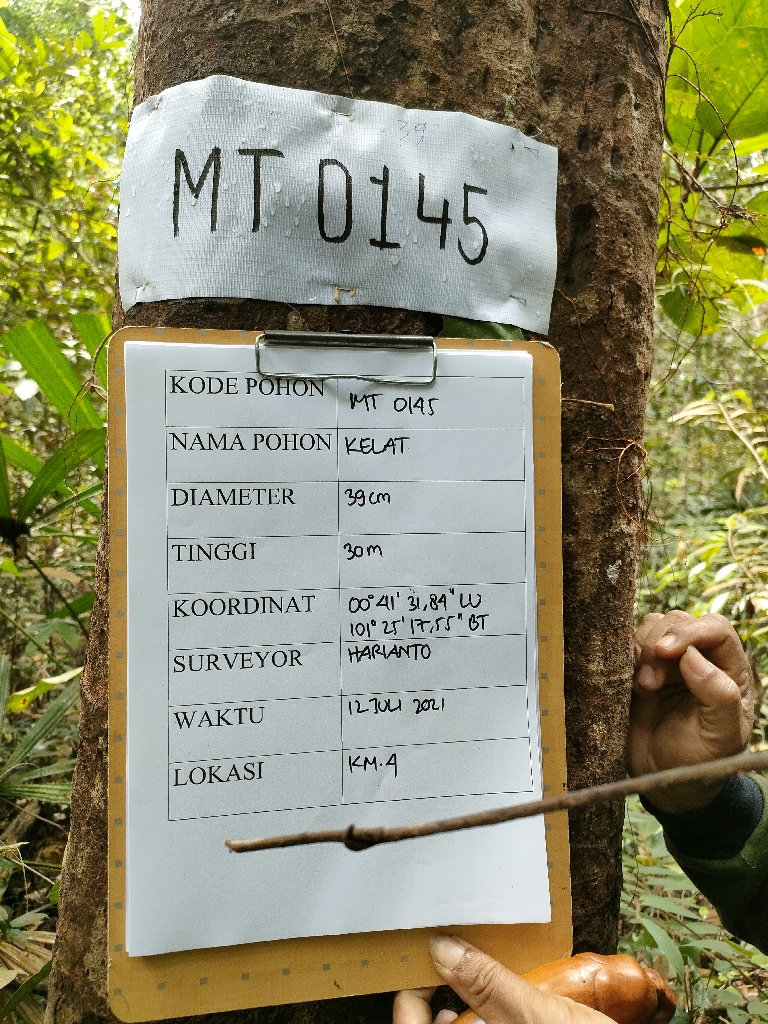 MT 0145
KODE POHON MT 0145
NAMA POHON KELAT
DIAMETER 39cm
TINGGI 30m
KOORDINAT 00° 41' 31,84" LU
101° 25' 17,55" BT
SURVEYOR HARIANTO
WAKTU 12 JULI 2021
LOKASI KM.4